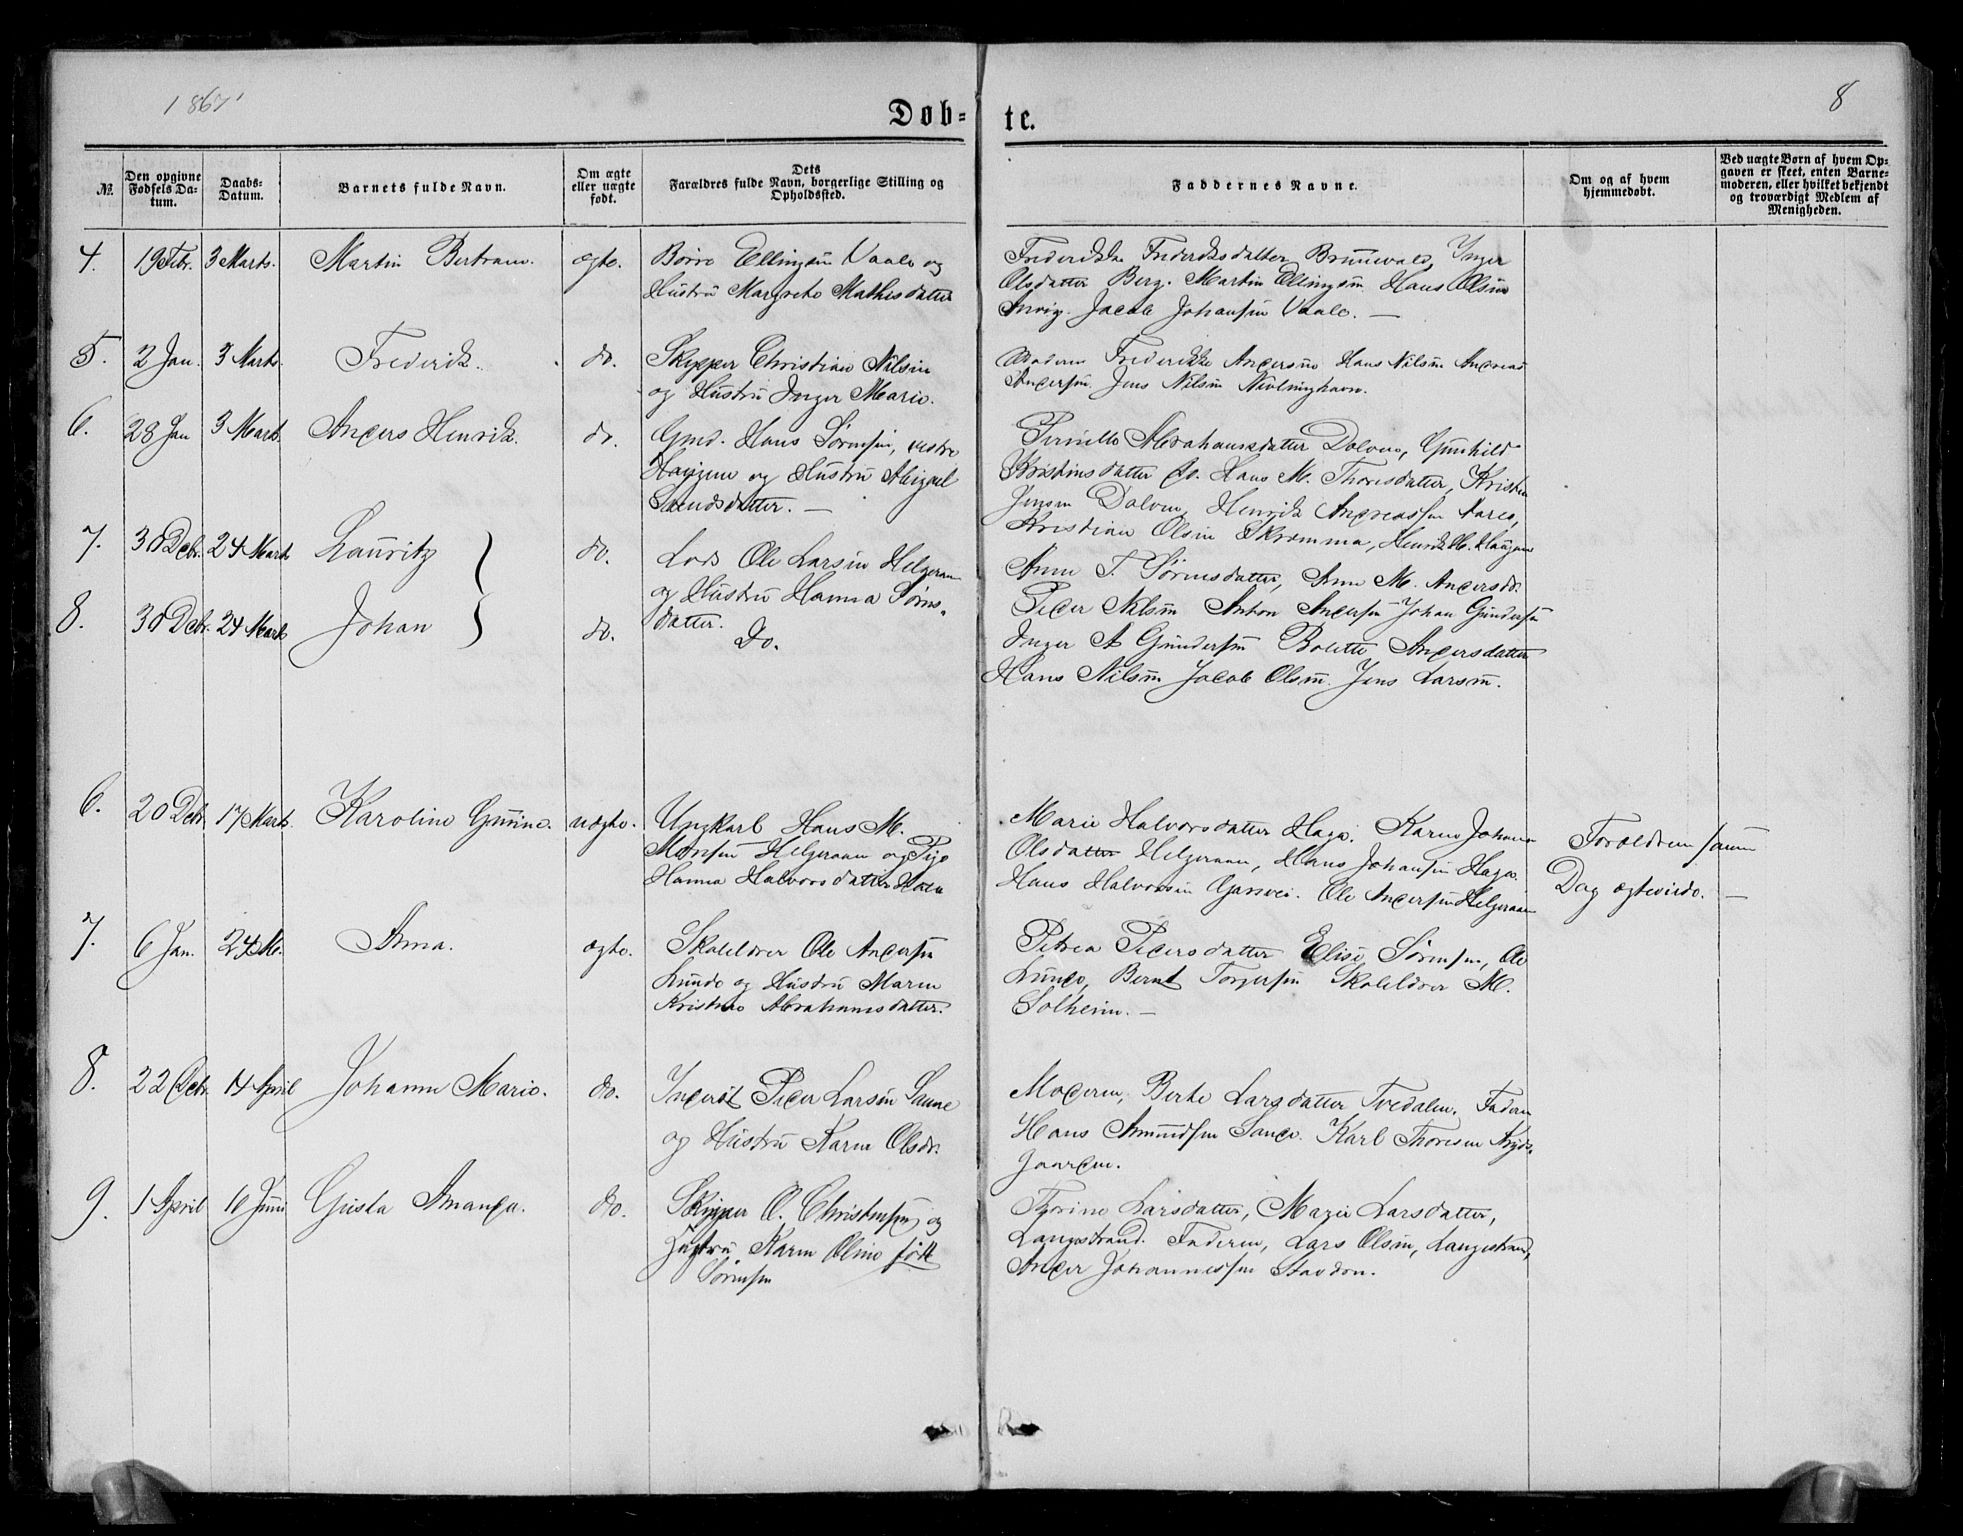 1867
8
Døb-
te.
№
Den opgivne Fødsels Da-tum.
Daabs-Datum.
Barnets fulde Navn.
Om ægte eller uægte født.
Dets Forældres fulde Navn, borgerlige Stilling og Opholdssted.
Faddernes Navne.
Om og af hvem hjemmedøbt.
Ved uægte Børn af hvem Op-gaven er skeet, enten Barne-moderen, eller hvilket bekjendt og troværdigt Medlem af Menigheden.
4. 19 Febr. 3 Marts. Martin Bertram. ægte. Børre Ellingsen Vaale og
Hustru Margrete Mathisdatter
Frederikke Frederiksdatter Brunvald, Inger
Olsdatter Berg. Martin Ellingsen Hans Olsen
Jacob Johansen Vaale. —
5. 2 Jan. 3 Marts Frederik. do. Skipper Christian Nilsen
og Hustru Inger Marie.
Frederikke Andersen Hans Nilsen Andreas
Andersen Jens Nilsen Nevlunghavn.
6. 28 Jan 3 Marts. Anders Henrik. do. Gmd. Hans Sørensen, vestre
Haugene og Hustru Abigael
datter. —
Pernille Abrahamsdatter Dolven, Gunhild
Kristensdatter do. Hans M. Thoresdatter, Kristen
Jensen Dolven, Henrik Andreassen
Kristian Olsen Skromma, Henrik H. Haugene
7. 30 Debr. 24 Marts Lauritz do. Lods Ole Larsen Helgeraaen
og Hustru Hanna Sørens-
datter.
Anne T. Sørensdatter, Anne M. Andersdr.
Peder Nilsen Anton Andersen Johan Gundersen
8. 30 Debr. 24 Marts Johan do. Do.
Inger A Gundersen Bolette Andersdatter
Hans Nilsen Jacob Olsen. Jens Larsen.
6. 20 Debr. 17 Marts. Karoline Gurine. uægte. Ungkarl Hans M.
Helgeraaen og Pige
Hanna Halvorsdatter
Marie Halvorsdatter Haga. Karen Johanna
Olsdatter Helgeraaen, Hans Johansen Haga.
Hans Halvorsen Ole Andersen Helgeraaen
Forældrene samme
Dag ægteviede. —
7. 6 Jan. 24 M. Anna. ægte. Skolelærer Ole Andersen
Lunde og Hustru Maren
Kristine Abrahamsdatter.
Petrea Pedersdatter Elise Sørensen, Ole
Lunde, Bernt Torgersen Skolelærer M.
Solheim. —
8. 22 Debr. 14 April Johanne Marie. do. Inderst Peder Larsen Sande
og Hustru Karen Olsdr.
Moderen, Berte Larsdatter Tvedalen. Faderen
Hans Amundsen Sande. Karl Thoresen
gaarden.
9. 1 April 10 Juni Gusta Amanda. do. Skipper O. Christensen og
Hustru Karen Oline født
Sørensen
Thorine Larsdatter, Marie Larsdatter,
Langestrand. Faderen, Lars Olsen, Langestrand,
Anders Johannessen Stavdon.